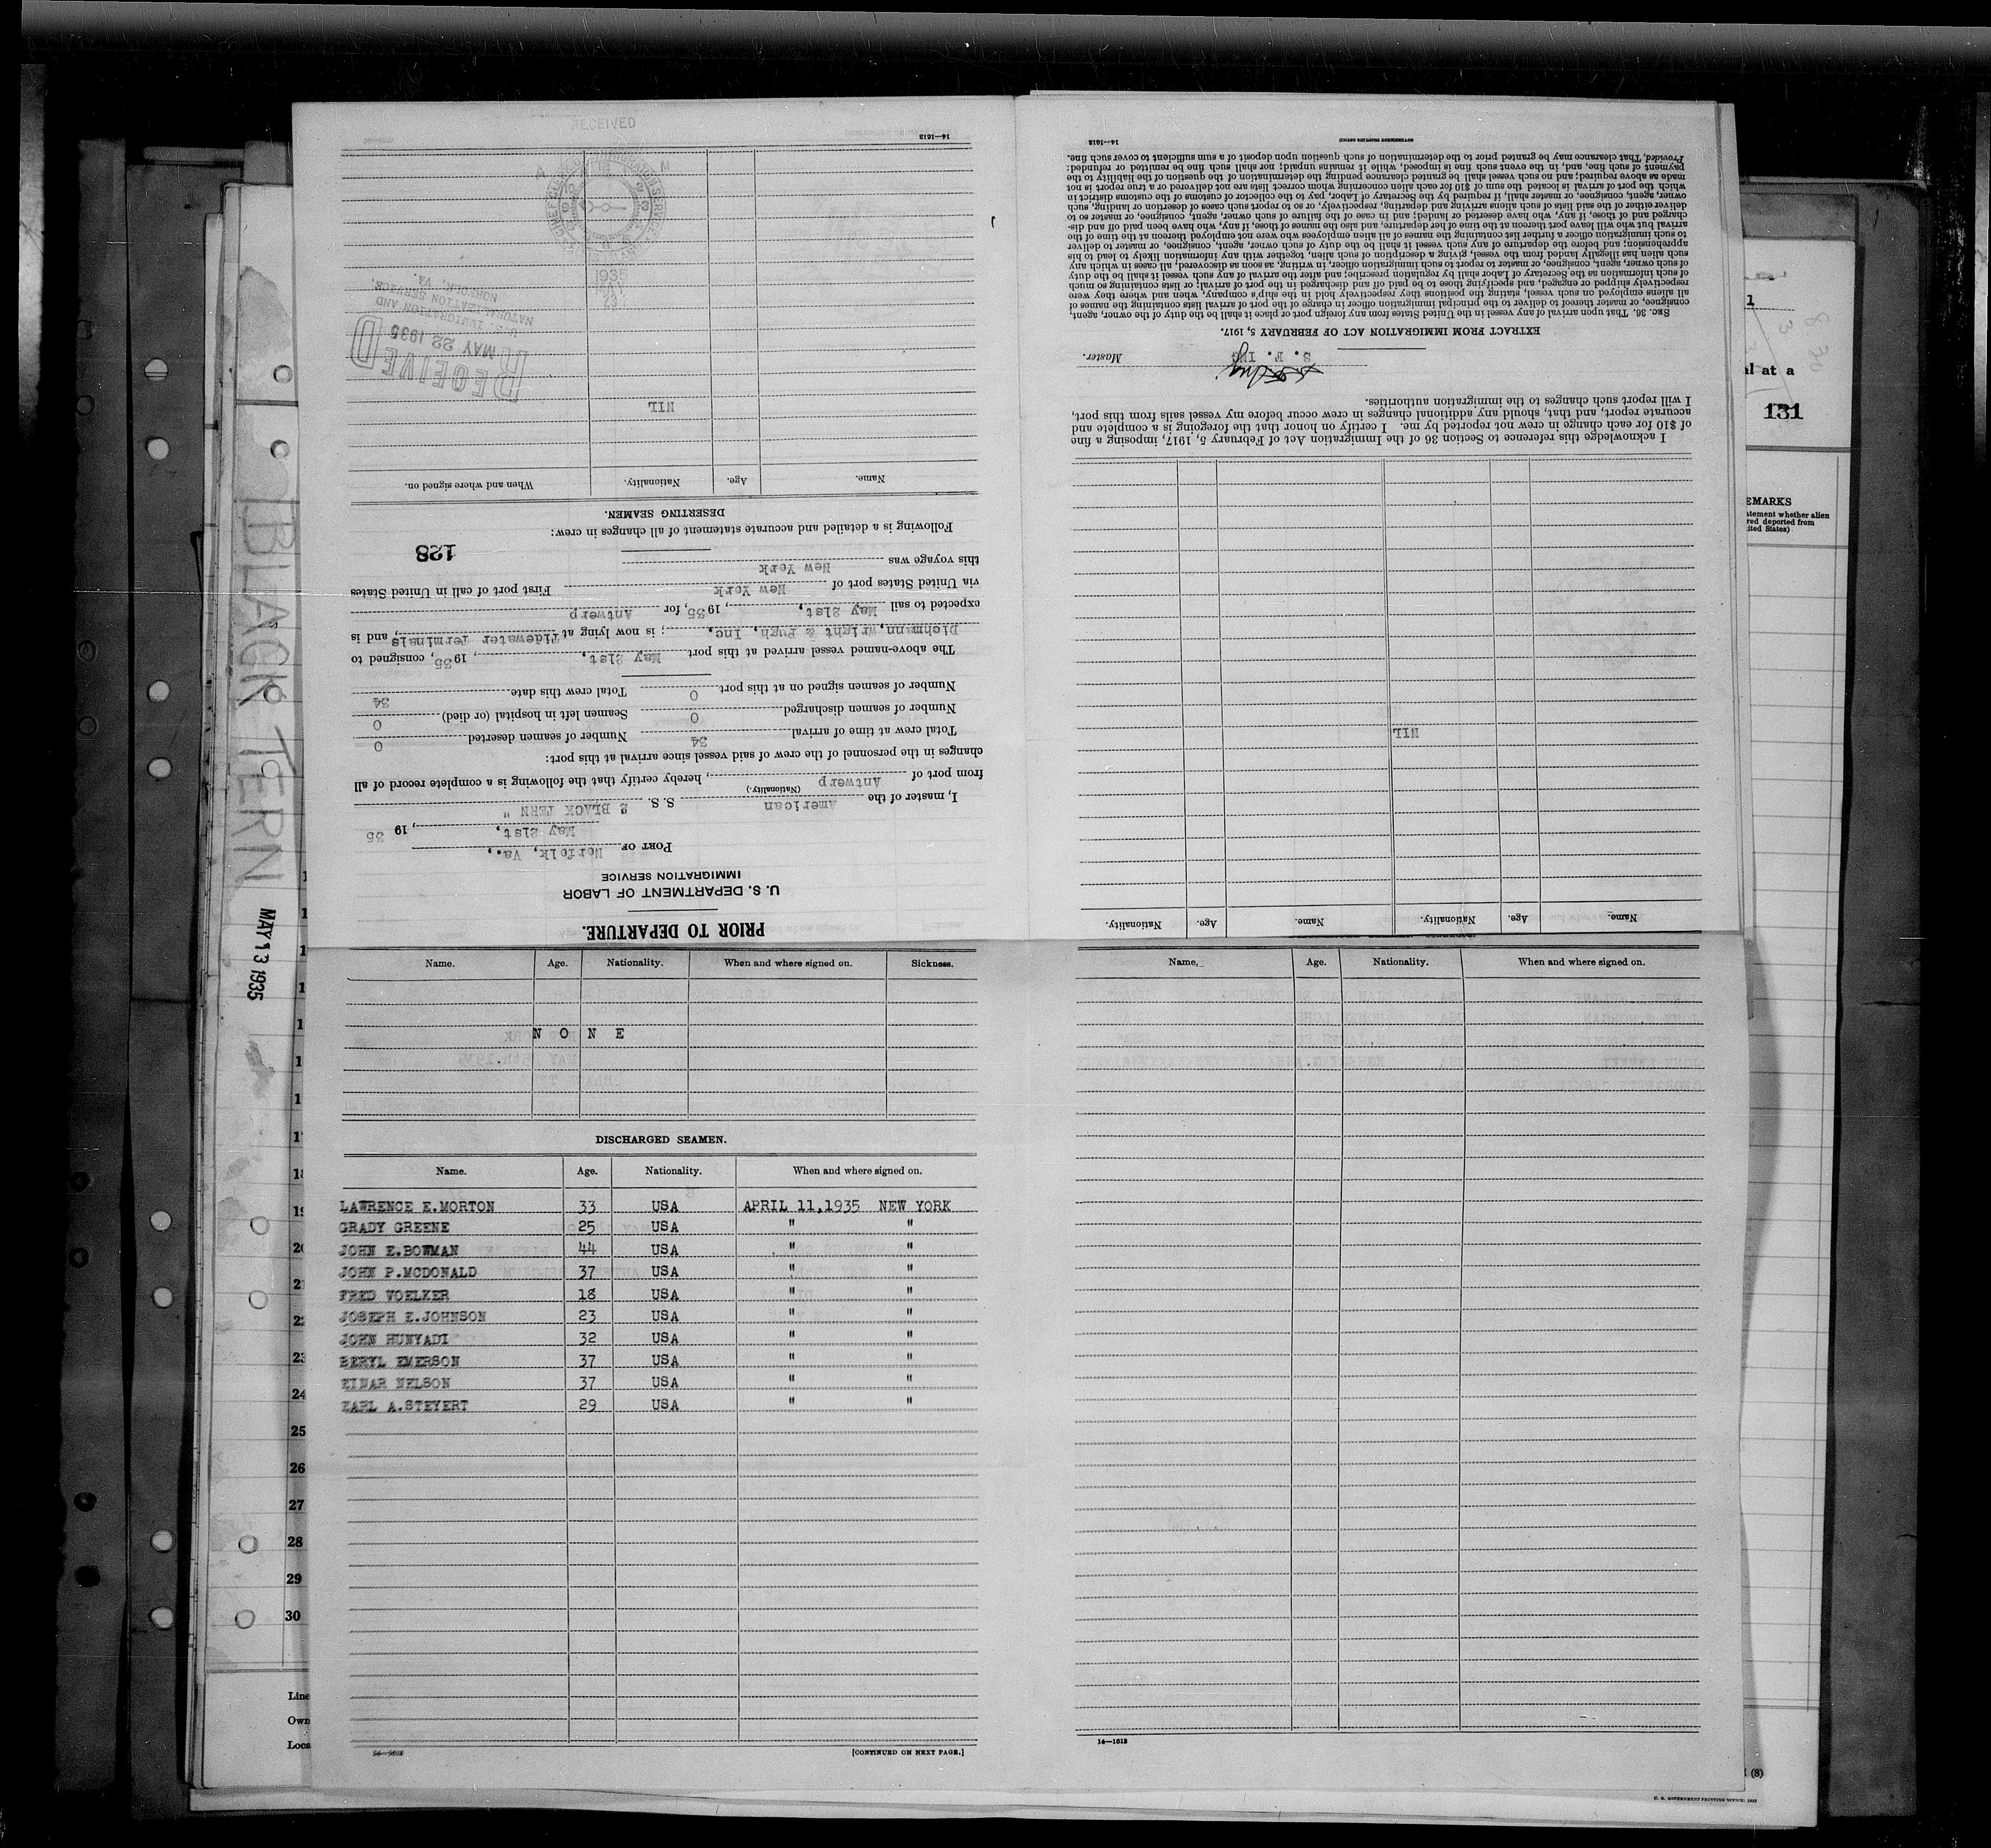 BLACK TERN MAY 13 1935
PRIOR TO DEPARTURE.
U. S. DEPARTMENT OF LABOR
IMMIGRATION SERVICE
PORT OF Norfolk, Va.,
May 21st, , 19 35
I, master of the American S. S. " BLACK TERN "
(Nationality.)
from port of Antwerp , hereby certify that the following is a complete record of all
changes in the personnel of the crew of said vessel since arrival at this port:
Total crew at time of arrival 34 Number of seamen deserted 0
Number of seamen discharged 0 Seamen left in hospital (or died) 0
Number of seamen signed on at this port 0 Total crew this date 34
The above-named vessel arrived at this port May 21st, , 1935, consigned to
Dichmann, Wright & Pugh, Inc, ; is now lying at Tidewater Terminals , and is
expected to sail May 21st, , 1935, for Antwerp
via United States port of New York First port of call in United States
this voyage was New York
128
Following is a detailed and accurate statement of all changes in crew:
DESERTING SEAMEN.
Name. Age. Nationality. When and where signed on.
NIL
RECEIVED
MAY 22 1935
U. S. IMMIGRATION AND
NATURALIZATION SERVICE
NORFOLK, VA.
RECEIVED
1935
MAY
23
14—1613
Name. Age. Nationality. Name. Age. Nationality.
NIL
I acknowledge this reference to Section 36 of the Immigration Act of February 5, 1917, imposing a fine
of $10 for each change in crew not reported by me. I certify on honor that the foregoing is a complete and
accurate report, and that, should any additional changes in crew occur before my vessel sails from this port,
I will report such changes to the immigration authorities.
S. F. ING Master.
EXTRACT FROM IMMIGRATION ACT OF FEBRUARY 5, 1917.
SEC. 36. That upon arrival of any vessel in the United States from any foreign port or place it shall be the duty of the owner, agent,
consignee, or master thereof to deliver to the principal immigration officer in charge of the port of arrival lists containing the names of
all aliens employed on such vessel, stating the positions they respectively hold in the ship's company, when and where they were
respectively shipped or engaged, and specifying those to be paid off and discharged in the port of arrival; or lists containing so much
of such information as the Secretary of Labor shall by regulation prescribe; and after the arrival of any such vessel it shall be the duty
of such owner, agent, consignee, or master to report to such immigration officer, in writing, as soon as discovered, all cases in which any
such alien has illegally landed from the vessel, giving a description of such alien, together with any information likely to lead to his
apprehension; and before the departure of any such vessel it shall be the duty of such owner, agent, consignee, or master to deliver
to such immigration officer a further list containing the names of all alien employees who were not employed thereon at the time of the
arrival but who will leave port thereon at the time of her departure, and also the names of those, if any, who have been paid off and dis-
charged and of those, if any, who have deserted or landed; and in case of the failure of such owner, agent, consignee, or master so to
deliver either of the said lists of such aliens arriving and departing, respectively, or so to report such cases of desertion or landing, such
owner, agent, consignee, or master shall, if required by the Secretary of Labor, pay to the collector of customs of the customs district in
which the port of arrival is located the sum of $10 for each alien concerning whom correct lists are not delivered or a true report is not
made as above required; and no such vessel shall be granted clearance pending the determination of the question of the liability to the
payment of such fine, and, in the event such fine is imposed, while it remains unpaid; nor shall such fine be remitted or refunded:
Provided, That clearance may be granted prior to the determination of such question upon deposit of a sum sufficient to cover such fine.
14—1613 GOVERNMENT PRINTING OFFICE
Name. Age. Nationality. When and where signed on. Sickness.
N O N E
DISCHARGED SEAMEN.
Name. Age. Nationality. When and where signed on.
LAWRENCE E.MORTON 33 USA APRIL 11,1935 NEW YORK
GRADY GREENE 25 USA " "
JOHN E.BOWMAN 44 USA " "
JOHN P.MCDONALD 37 USA " "
FRED VOELKER 18 USA " "
JOSEPH E.JOHNSON 23 USA " "
JOHN HUNYADI 32 USA " "
BERYL EMERSON 37 USA " "
EINAR NELSON 37 USA " "
EARL A.STEYERT 29 USA " "
14—1613 [CONTINUED ON NEXT PAGE.]
Name. Age. Nationality. When and where signed on.
14—1613
20
21
23
24
25
26
27
28
29
30
Line
Own
Loca
1
al at a
131
EMARKS
atement whether alien
red deported from
ited States)
(8)
U. S. GOVERNMENT PRINTING OFFICE: 1932